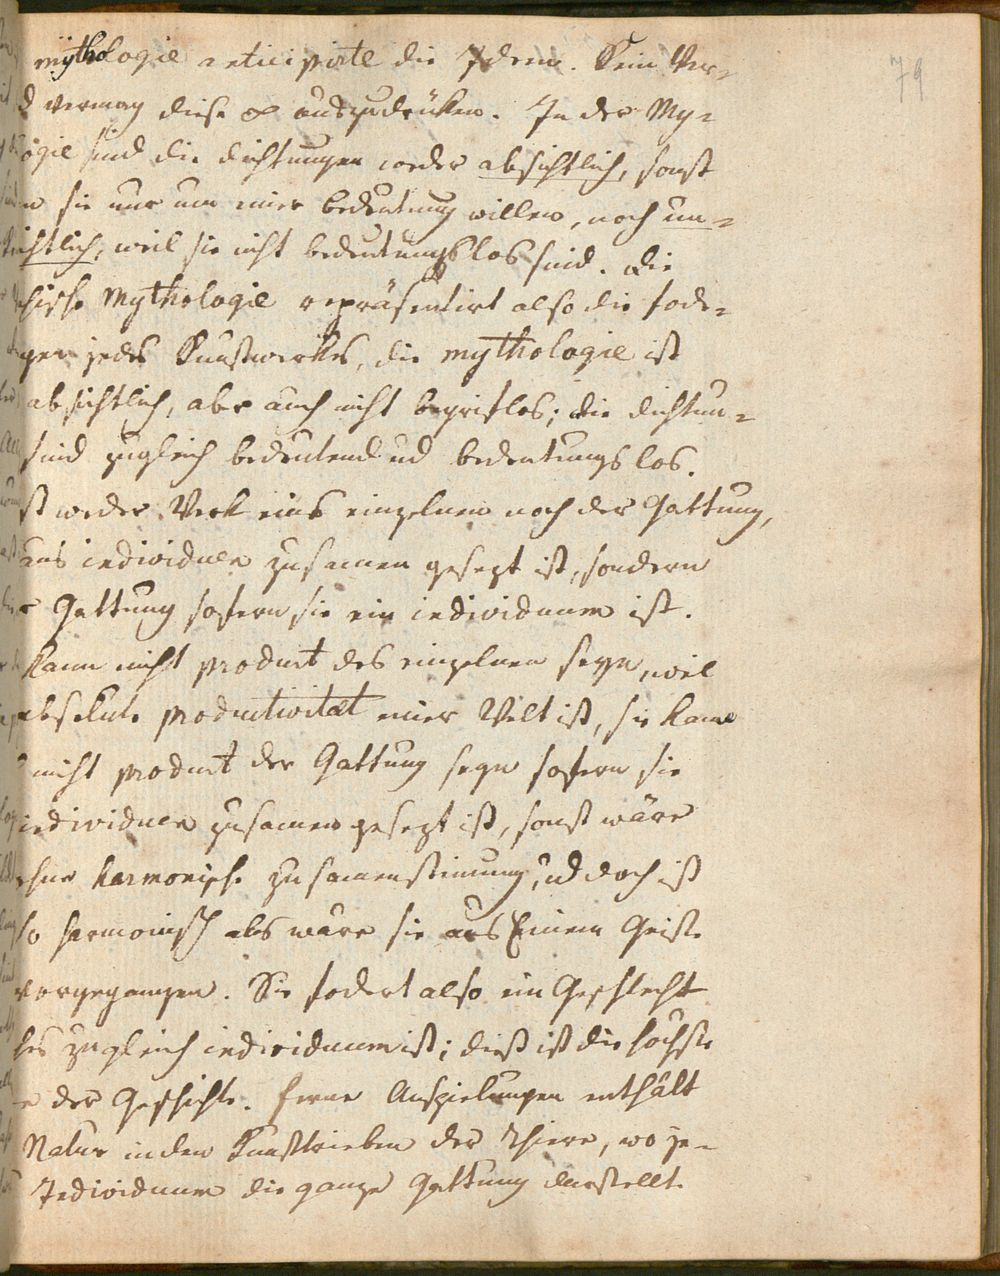 79
mythologie anticipirte die Ideen. Kein Ver-
d vermag diese ∞ auszudrüken. In der My-
ogie sind die dichtungen weder absichtlich, sonst
n sie nur um einer bedeutung willen, noch un-
sichtlich, weil sie nicht bedeutungslos sind. die
chische Mythologie repräsentirt also die fode-
gen jedes Kunstwerkes, die mythologie ist
absichtlich, aber auch nicht begriflos; die dichtun-
sind zugleich bedeutend ud bedeutungslos.
st weder Werk eines einzelnen noch der Gattung,
aus individuen zusamen gesezt ist, sondern
r Gattung sofern sie ein individuum ist.
kann nicht product des einzelnen seyn, weil
absolute productivitæt einer Welt ist, sie kann
nicht product der Gattung seyn sofern sie
individuen zusamen gesezt ist, sonst wäre
ohne harmonische zusamenstimung, ud doch ist
so harmonisch als wäre sie aus Einem Geiste
vorgegangen. Sie fodert also ein Geschlecht
ches zugleich individuum ist; dieß ist die höchste
e der Geschichte. ferne Anspielungen enthält
Natur in den Kunsttrieben der Thiere, wo je-
Individuum die ganze Gattung darstellt.